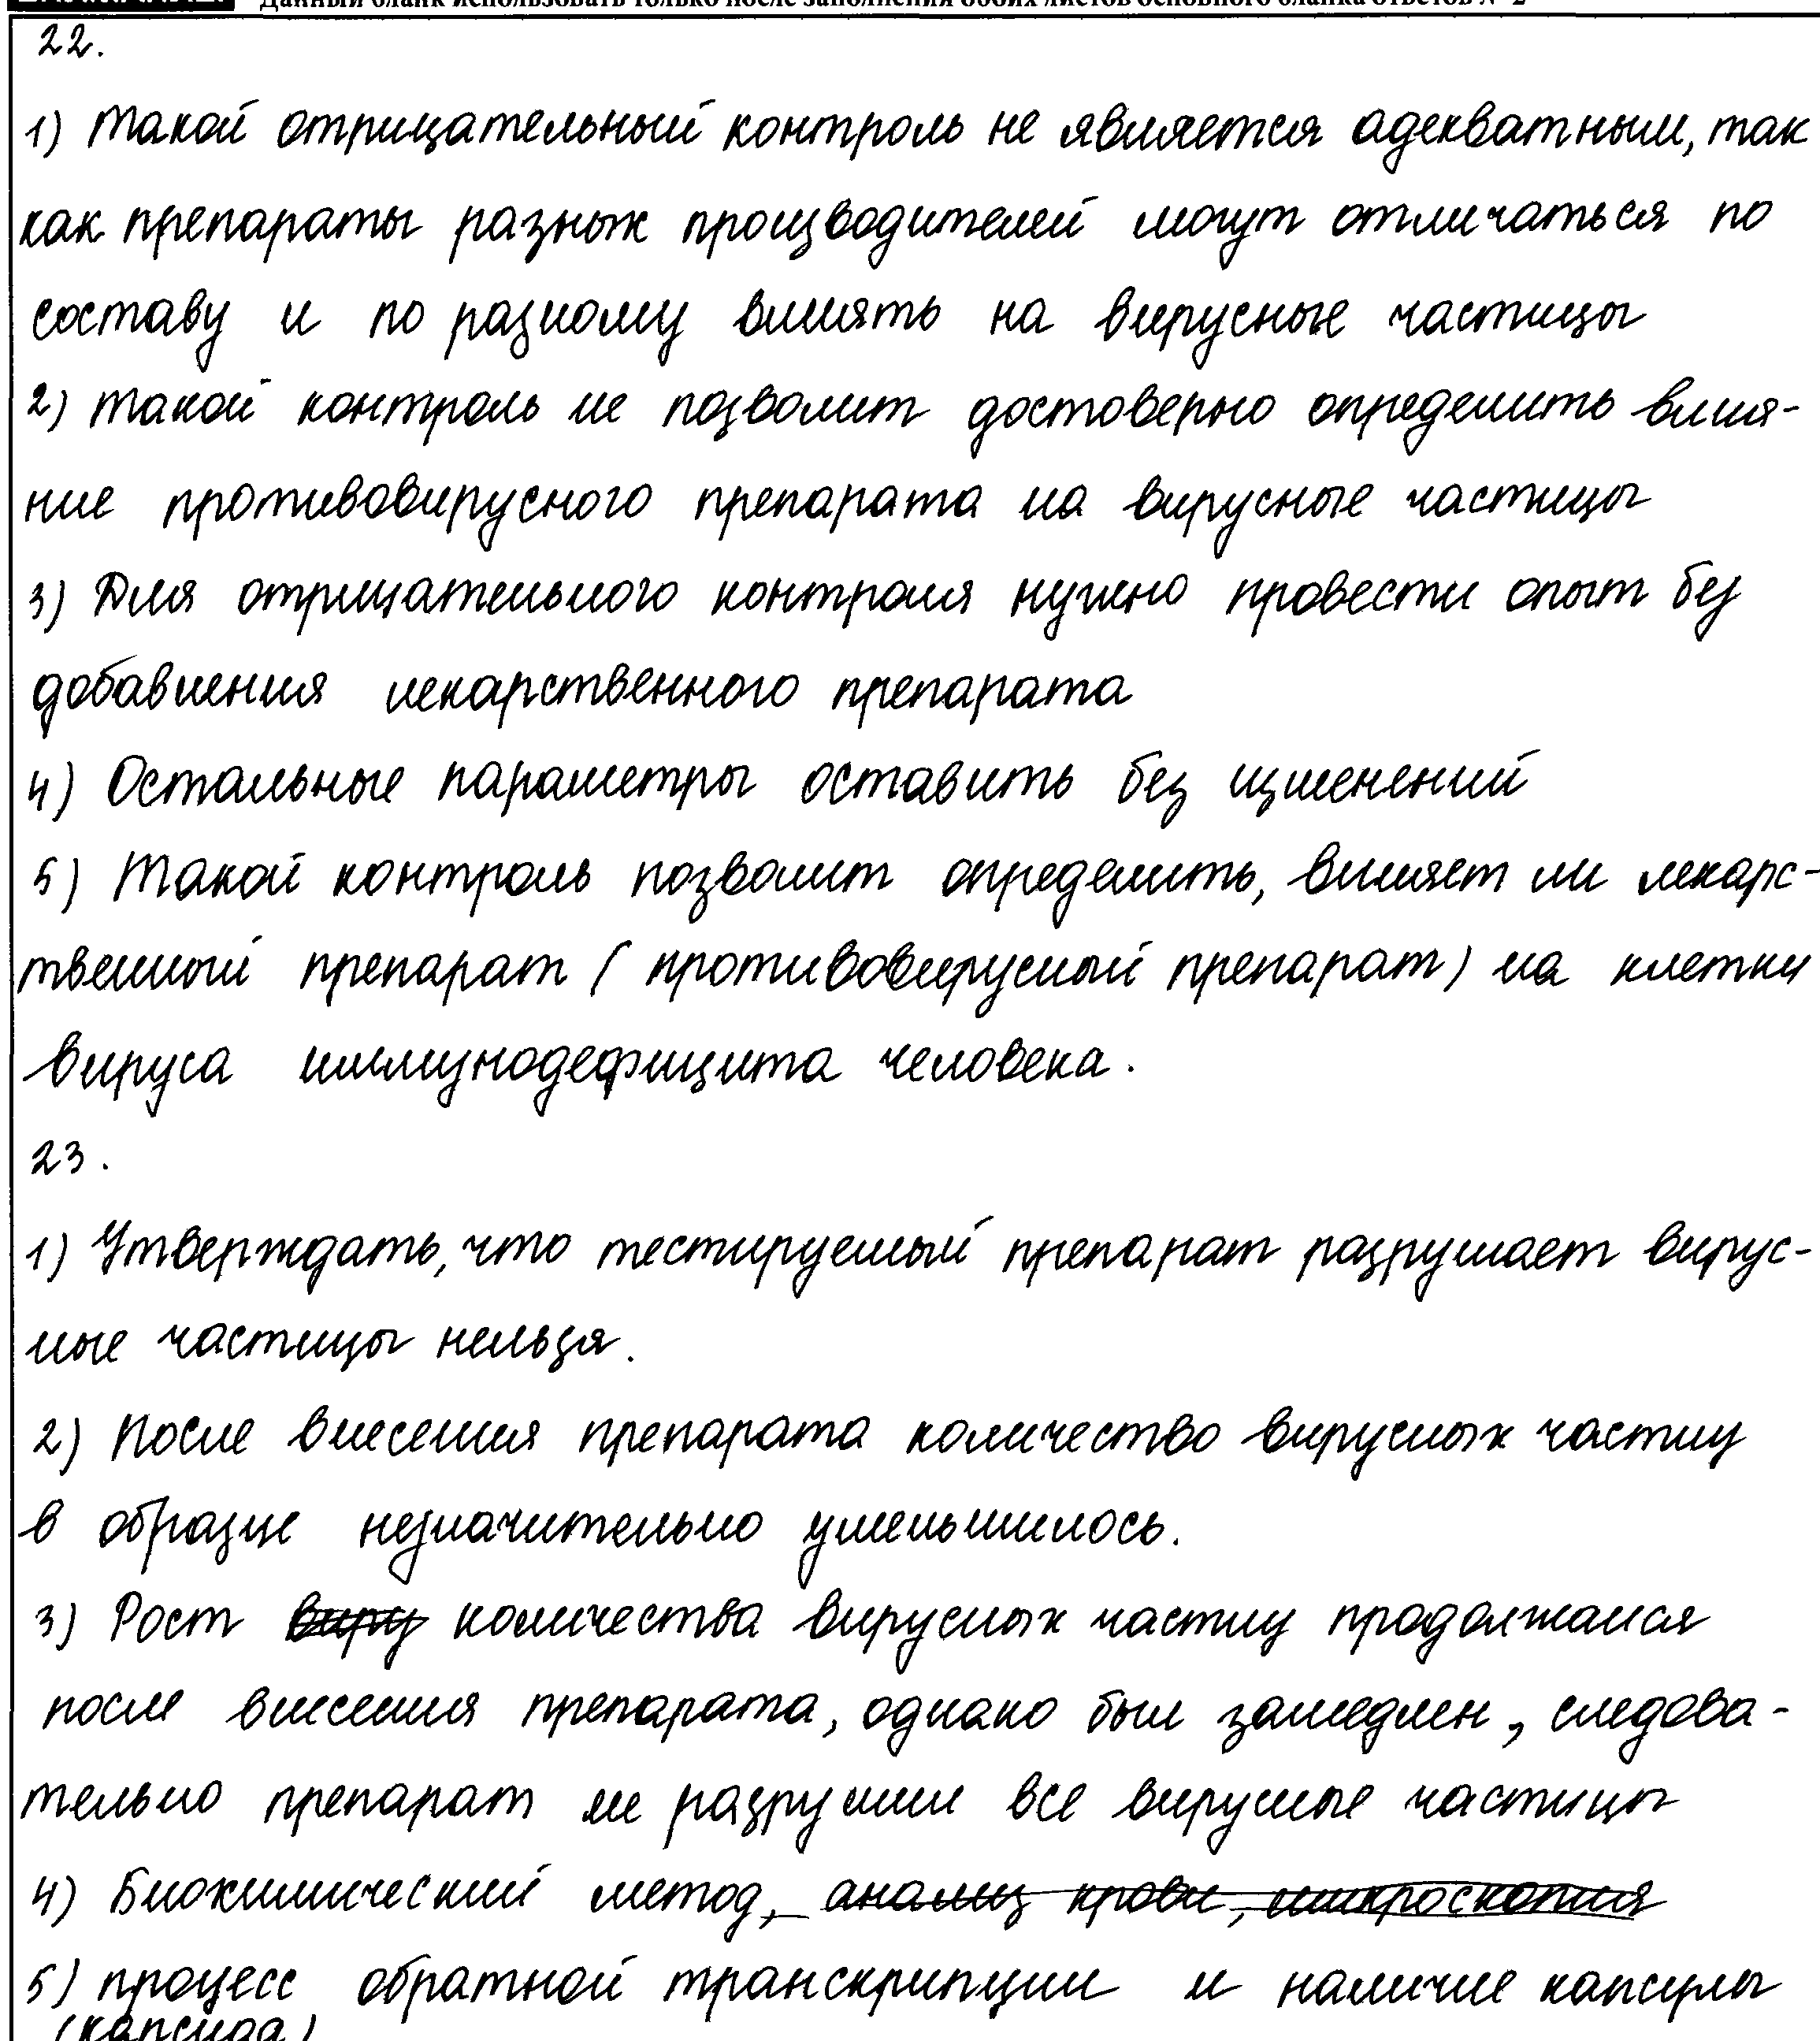 Данный бланк использовать только после заполнения обоих листов основного бланка ответов № 2
22.
1) Такой отрицательный контроль не является адекватным, так
как препараты разных производителей могут отличаться по
составу и по разному влиять на вирусные частицы
2) Такой контроль не позволит достоверно определить влия-
ние противовирусного препарата на вирусные частицы
3) Для отрицательного контроля нужно провести опыт без
добавления лекарственного препарата
4) Остальные параметры оставить без изменений
5) Такой контроль позволит определить, влияет ли лекарс-
твенный препарат (противовирусный препарат) на клетки
вируса иммунодефицита человека.
23.
1) Утверждать, что тестируемый препарат разрушает вирус-
ные частицы нельзя.
2) После внесения препарата количество вирусных частиц
в образце незначительно уменьшилось.
3) Рост виру количества вирусных частиц продолжался
после внесения препарата, однако был замедлен, следова-
тельно препарат не разрушил все вирусные частицы
4) Биохимический метод, анализ крови, микроскопия
5) процесс обратной транскрипции и наличие капсулы
(капсида)